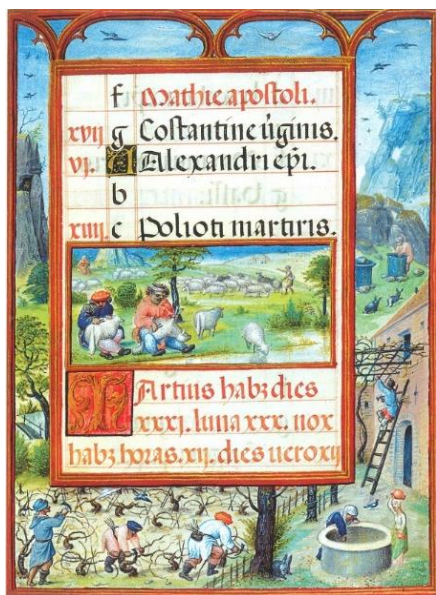 f Mathie apostoli.
xvij g Costantine ỽginis.
vj. A Alexandri ep̄i.
b
xiiij c Polioti martiris.
Martius habꝫ dies
xxxj. luna xxx. nox
habꝫ horas. xij. dies uero xij